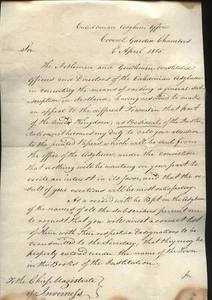 Caledonian Asylum Office
Covent Garden Chambers
6 April 1815
Sir
The Noblemen and Gentlemen constituted
Officers and Directors of the Caledonian Asylum
in consulting the means of raising a general Sub-
scription in Scotland, having resolved to make
an appeal to the different Towns in that part
of the United Kingdom; as Secretary of the Insti-
tution it becomes my Duty to call your attention
to the printed Papers which will be sent from
the office of the Asylum under the conviction
that nothing will be wanting on your part to
excite an interest in its favor, and that the re-
sult of your exertions will be most satisfactory.
As a record will be kept in the Asylum
of the names of all the subscribers permit me
to request that you will direct a correct list
of them with their respective designations to be
transmitted to the Secretary, that they may be
properly entered under the name of the Town
in the Books of the Institution.
To the Chief Magistrate
of Inverness